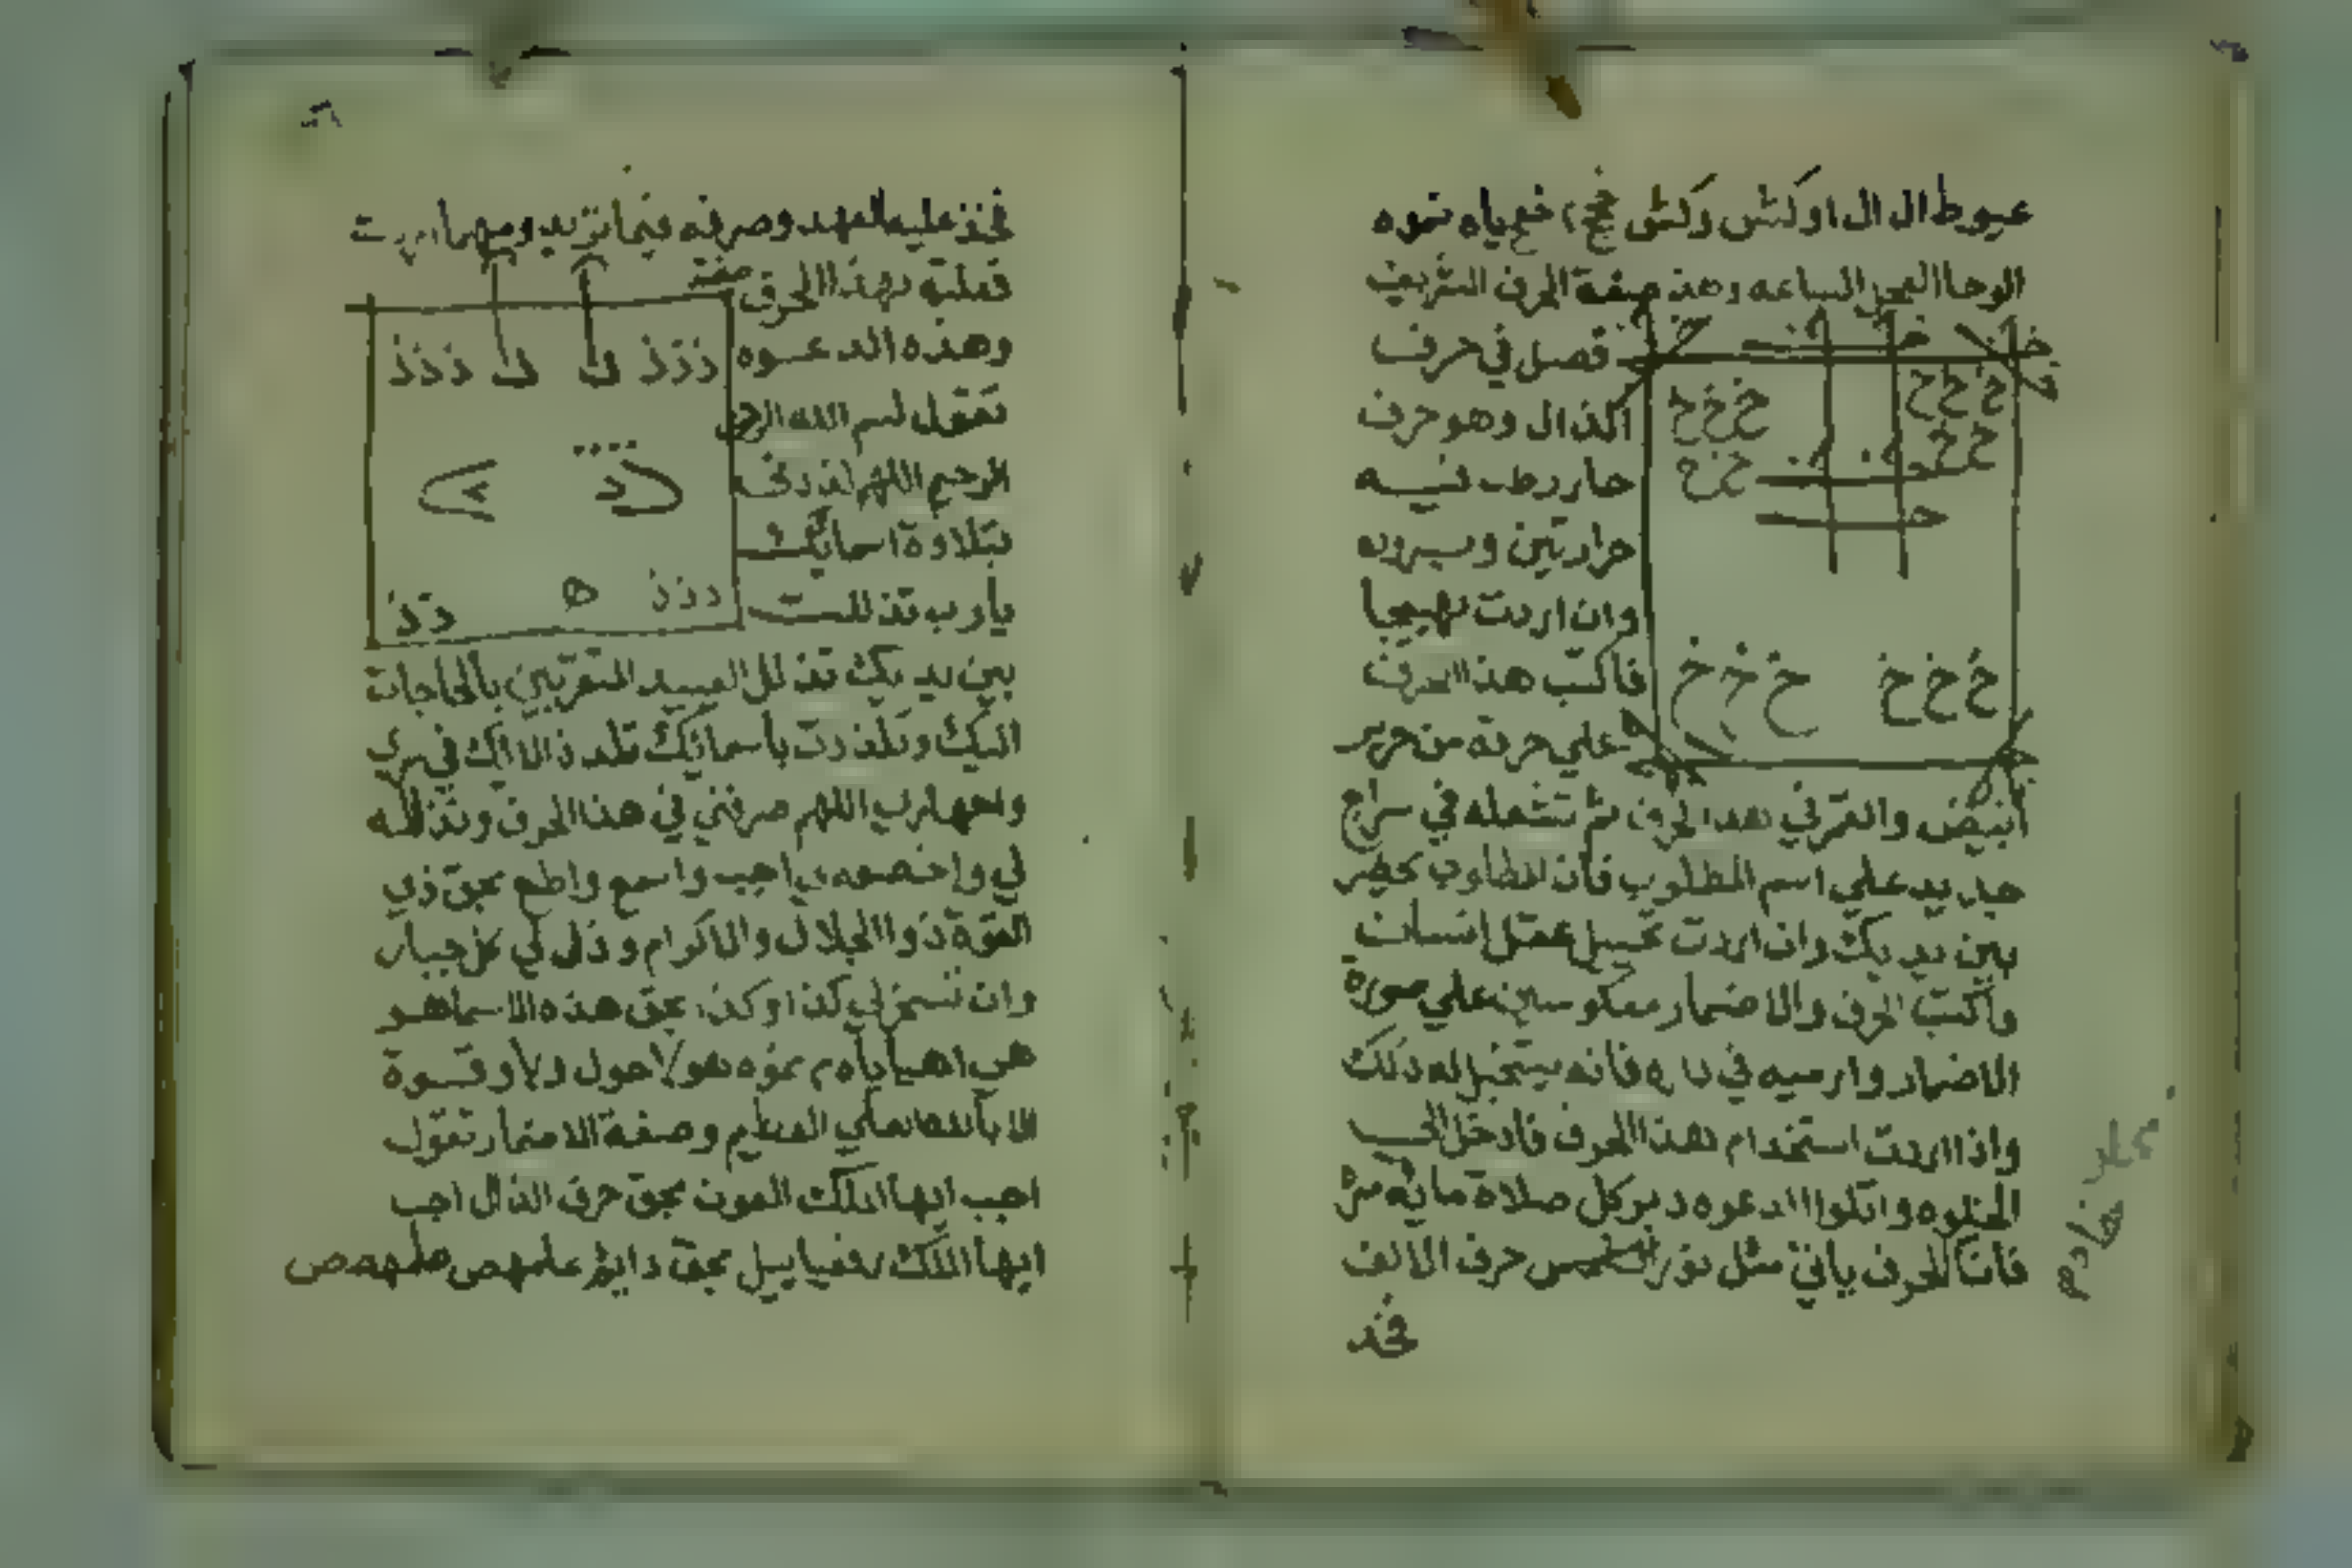 عيوط ال ال اولش ولش خج خج ياه نموه
الوحا العجل الساعه وهذه صفة الحرف الشريف
فصل في حرف
الذال وهو حرف
حار رطب فيه
حرارتين وبروده
وان اردت تهيجا
فاكتب هذا الحرف
علي خرقة من حرير
خ خ خ خ خ خ
خ خ خ خ
خ خ خ خ خ خ
ابيض هذا الحرف ثم تشعله في سراج
جديد علي اسم المطلوب فان المطلوب يحضر
بين يديك وان اردت عقل انسان
واكتب الحرف والاضمار معكوسين علي صورة
الاضمار وارميه في فانه له ذلك
واذا اردت استخدام هذا الحرف فادخل الي
الخلوه واتلوا الدعوه دبر كل صلاة مايه مره
فان الحرف ياتي مثل نور الشمس حرف الالف
فخذ
خادم
فخذ عليه العهد وصرفه فيما تريد ومهما اردت
فعليه بهذا الحرف صفته
وهذه الدعوه
تقول بسم الله الرحمن
الرحيم اللهم
بتلاوة اسمائك
يارب تذللت
ذذذ ل ل ذذذ
ذذذ ه ذذ
بين يديك تذلل العبيد المتقربين بالحاجات
اليك وتلذذت باسمائك تلذذ الايك في سري
واجهاري اللهم صرفني في هذا الحرف وتذلله
لي واخضعه لي اجب واسمع واطع بحق ذي
القوة ذوا الجلال والاكرام وذل لي كل جبار
وان تسخر لي كذا وكذا بحق هذه الاسما هو
هي اهيا ياه م نموه هو لا حول ولا قوة
الا بالله العلي العظيم وصفة الاضمار تقول
اجب ايها الملك العون بحق حرف الذال اجب
ايها الملك بحق دايم علمهص طمهص